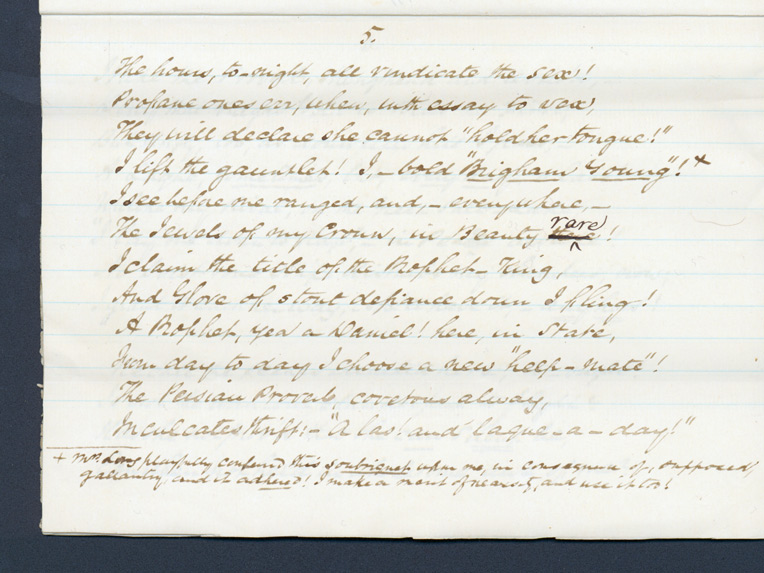 5.
The hours, to-night, all vindicate the sex!
Profane ones err, when, with essay to vex,
They will declare she cannot "hold her tongue!"
I lift the gauntlet! I, - bold "Brigham Young"! +
I see before me ranged, and, - everywhere, -
The Jewels of my Crown, in Beauty rare!
I claim the title of the Prophet-King,
And Glove of stout defiance down I fling!
A Prophet, yea a Daniel! here, in State,
From day to day I choose a new "help-mate"!
The Persian Proverb, covetous alway,
Inculcates thrift: - "A las! and laque-a-day!"
+ Mrs. Long playfully conferred this soubriquet upon me, in consequence of, supposed,
gallantry, and it adheres! I make a merit of necessity, and use it too!